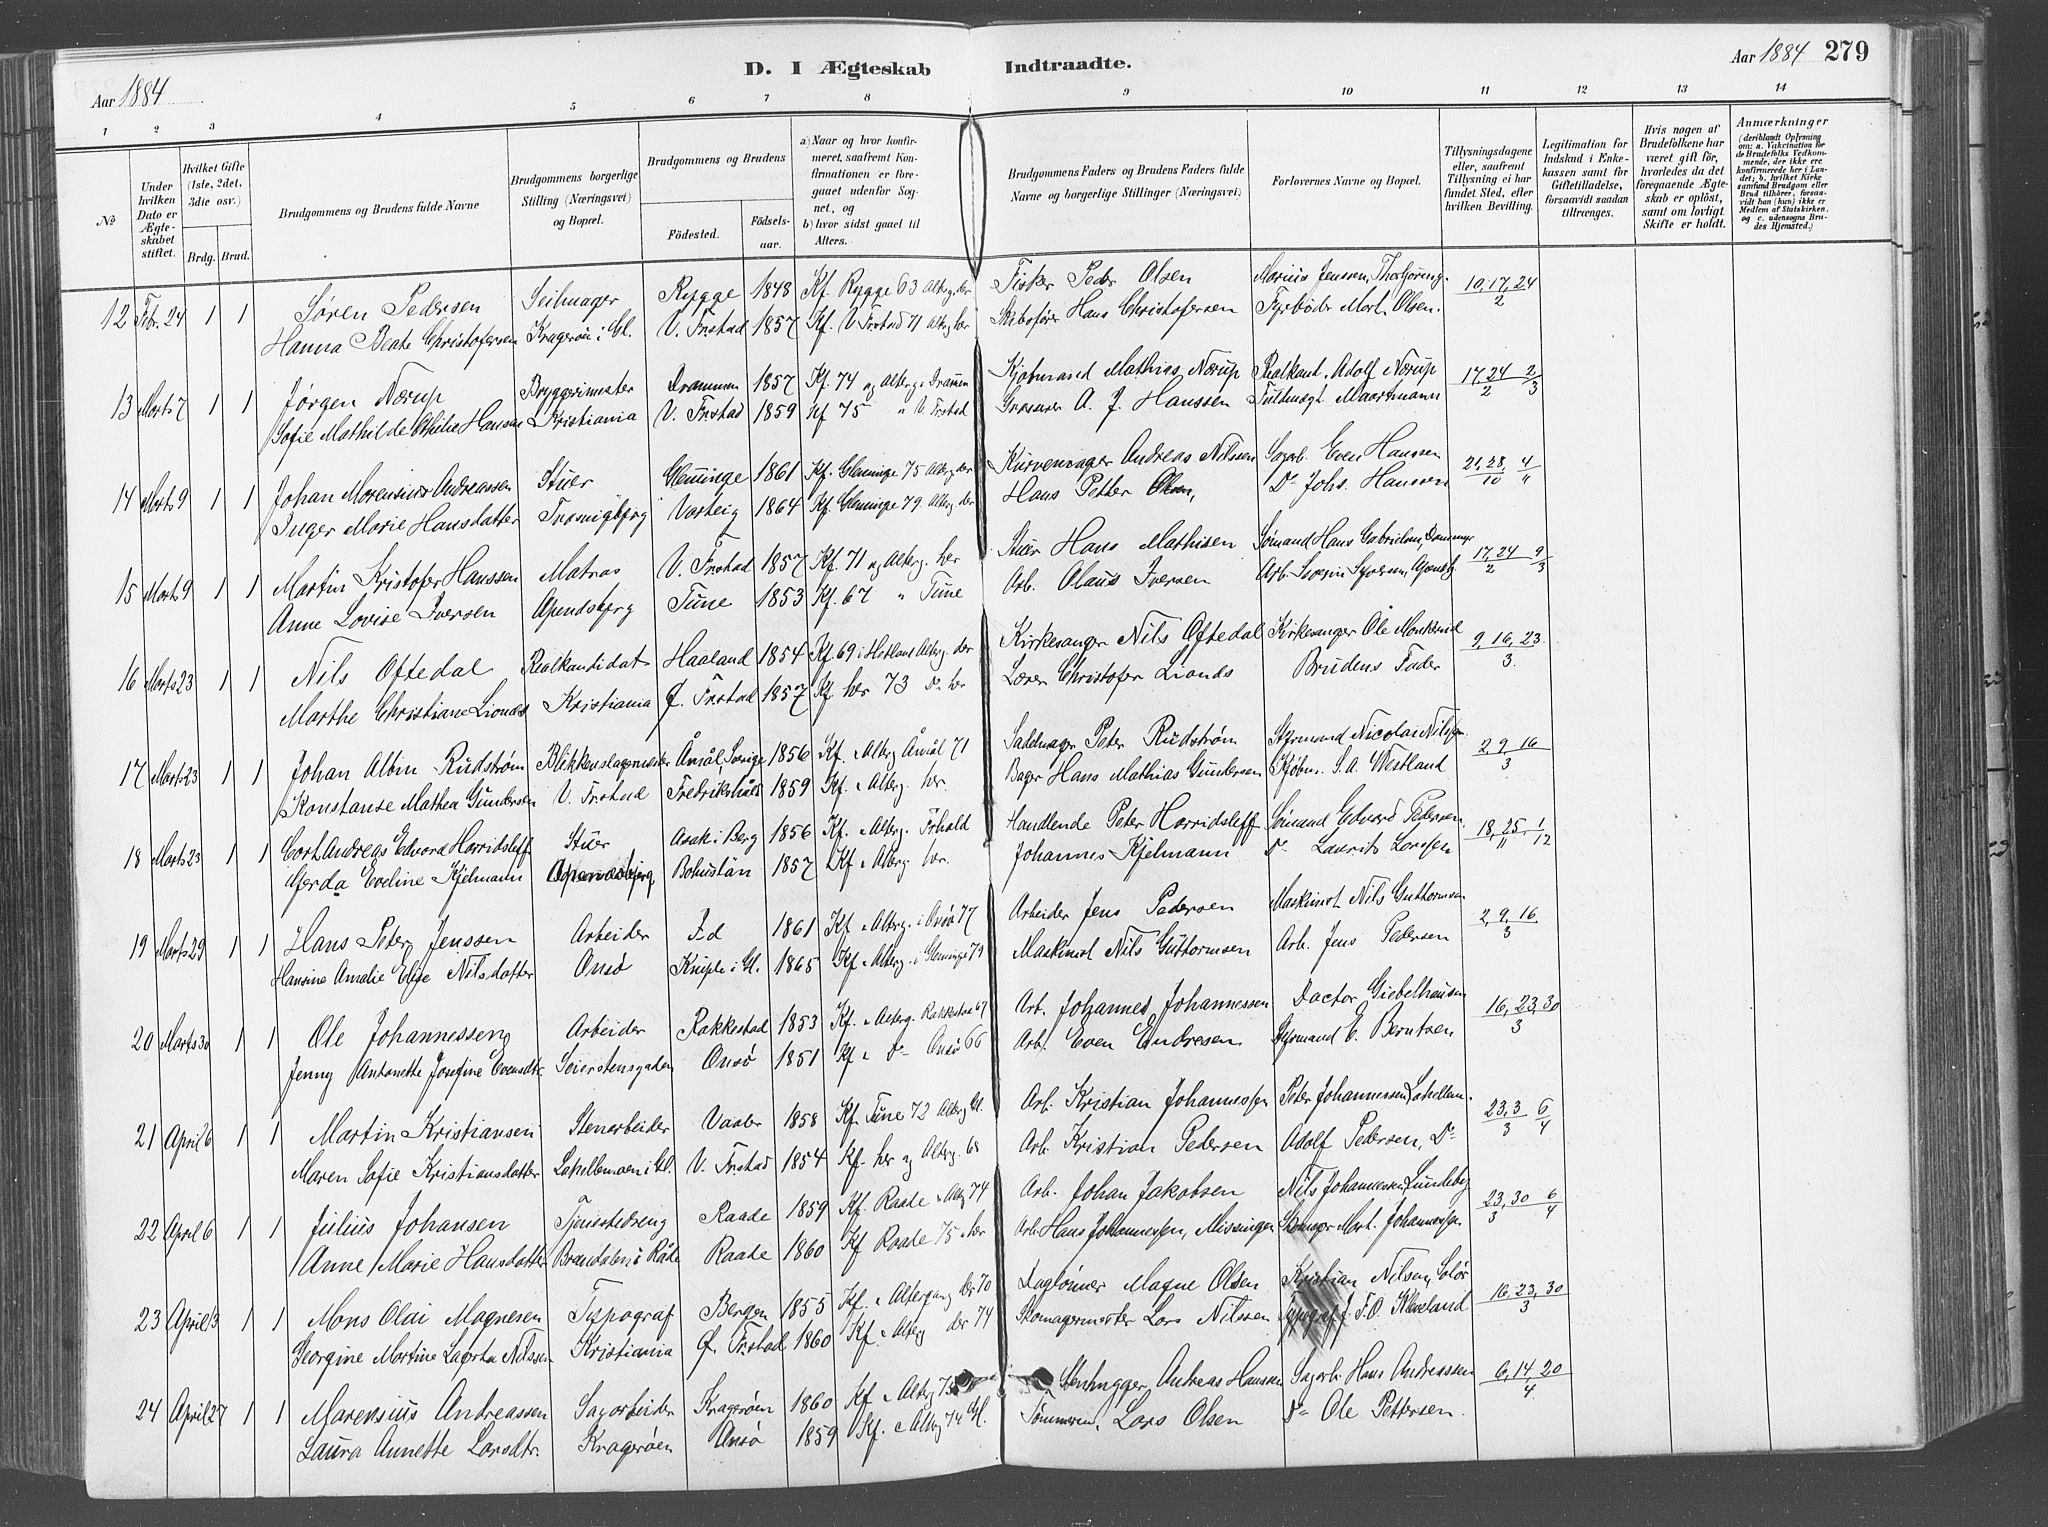 Aar 1884
D. I Ægteskab Indtraadte.
Aar 1884 279
1 2 3 4 5 6 7 8 9 10 11 12 13 14
№
Under hvilken Dato er Ægteskabet stiftet.
Hvilket Gifte (1ste, 2det, 3die osv.)
Brdg. Brud.
Brudgommens og Brudens fulde Navne
Brudgommens borgerlige Stilling (Næringsvei) og Bopæl.
Brudgommens og Brudens
Fødested. Fødselsaar.
a) Naar og hvor konfirmeret, saafremt Konfirmationen er foregaaet udenfor Sognet, og
b) hvor sidst gaaet til Alters.
Brudgommens Faders og Brudens Faders fulde Navne og borgerlige Stillinger (Næringsvei)
Forlovernes Navne og Bopæl.
Tillysningsdagene eller, saafremt Tillysning ei har fundet Sted, efter hvilken Bevilling.
Legitimation for Indskud i Enkekassen samt for Giftetilladelse, forsaavidt saadan tiltrænges.
Hvis nogen af Brudefolkene har været gift før, hvorledes da det foregaaende Ægteskab er opløst, samt om lovligt Skifte er holdt.
Anmærkninger
(deriblandt Oplysning om: a. Vakcination for de Brudefolks Vedkommende, der ikke ere konfirmerede her i Landet; b. hvilket Kirkesamfund Brudgom eller Brud tilhører, forsaavidt han (hun) ikke er Medlem af Statskirken, og c. udensogns Brudes Hjemsted.)
12 Febr. 24 1 1 Søren Pedersen Seilmager Rygge 1848 Kf. Rygge 63 Alterg. der Fisker Peder Olsen Marius Jenssen, 10, 17, 24/2
Hanna Beate Christofersen Kragerøn i Gl. V. Frstad 1857 Kf. V. Frstad 71 Alterg her Skibsfører Hans Christofersen Fyrbøder Mart. Olsen.
13 Marts 7 1 1 Jørgen Nørup Bryggerimester Drammen 1857 Kf. 74 og Alterg. i Drammen Kjøbmand Mathias Nørup Realkand. Adolf Nørup 17, 24/2 2/3
Sofie Mathilde Othilie Hansen Kristiania V. Frstad 1859 Kf 75 " V. Frstad Grosserer A. J. Hanssen Fuldmægt. Maartmann
14 Marts 9 1 1 Johan Morensius Andreassen Stuer Glemminge 1861 Kf. Glemminge 75 Alterg der Kurvemager Andreas Nilssen Sagarb. Even Hanssen 21, 28/10 4/11
Inger Marie Hansdatter Trosvigbjerg Varteig 1864 Kf. Glemminge 79 Alterg. der Hans Petter Olsen, Do Johs. Hanssen
15 Marts 9 1 1 Martin Kristofer Hanssen Matros V. Frstad 1857 Kf. 71 og Alterg. her Stuer Hans Mathisen Sømand Hans Gabrielsen, 17, 24/2 9/3
Anne Lovise Iversen Apendsbjerg Tune 1853 Kf. 67 " Tune Arb. Olaus Iversen Arb. Severin Syversen, Apendsbj.
16 Marts 23 1 1 Nils Oftedal Realkandidat Haaland 1854 Kf. 69 i Hetland Alterg. der Kirkesanger Nils Oftedal Kirkesanger Ole Monkerud 9, 16, 23/3
Marthe Christiane Lionds Kristiania Ø. Frstad 1857 Kf. her 73 Do her Lærer Christofer Lionds Brudens Fader
17 Marts 23 1 1 Johan Albin Rudstrøm Blikkenslagermester Åmål Sverige 1856 Kf. & Alterg Åmål 71 Sadelmager Peter Rudstrøm Styrmand Nicolai Nilssen 2, 9, 16/3
Konstanse Mathea Gundersen V. Frstad Fredrikshald 1859 Kf. & Alterg. her. Bager Hans Mathias Gundersen Kjøbm. S. A. Westland
18 Marts 23 1 1 Cort Andreas Edvard Horridsleff Stuer Asak i Berg 1856 Kf. & Alterg. Frhald Handlende Peter Horridsleff Sømand Edvard Pedersen 18, 25/11 1/12
Gerda Eveline Kjelmann Apenesbjerg Bohuslän 1857 Kf & Alterg her. Johannes Kjelmann Do Laurits Larssen
19 Marts 29 1 1 Hans Peter Jenssen Arbeider Id 1861 Kf. & Alterg. i Onsø 77 Arbeider Jens Pedersen Maskinist Nils Guttormsen 2, 9, 16/3
Hansine Amalie Elise Nilsdatter Onsø Kniple i Gl. 1865 Kf. & Alterg. i Glemminge 79 Maskinist Nils Guttormsen Arb. Jens Pedersen
20 Marts 30 1 1 Ole Johannessen Arbeider Rakkestad 1853 Kf. & Alterg. Rakkestad 67 Arb. Johannes Johannessen Doctor Giebelhausen 16, 23, 30/3
Jenny Antonette Josefine Evensdtr. Seierstensgaden Onsø 1851 Kf & Do Onsø 66 Arb. Even Endresen Styrmand E. Berntsen
21 April 6 1 1 Martin Kristiansen Stenarbeider Vaaler 1858 Kf. Tune 72 Alterg Gl. Arb. Kristian Johannessen Peter Johannessen, Lahellem. 23, 3/3 6/4
Maren Sofie Kristiansdatter Lahellemoen i Gl. V. Frstad 1854 Kf. her og Alterg. 68 Arb. Kristian Pedersen Adolf Petersen, Do
22 April 6 1 1 Julius Johansen Tjenestedreng Raade 1859 Kf. Raade & Altg 74 Arb. Johan Jakobsen Nils Johannessen, Lundeby 23, 30/3 6/4
Anne Marie Hansdatter Brandalen i Råde Raade 1860 Kf Raade 75 & her Arb. Hans Johannessen, Missingen Skomager Mart. Johannessen
23 April 13 1 1 Mons Olai Magnesen Typograf Bergen 1855 Kf. & Altergang der 70 Dagløner Magne Olsen Kristian Nilsen, Solør 16, 23, 30/3
Georgine Martine Lagerta Nilssen Kristiania Ø. Frstad 1860 Kf. & Alterg der 74 Skomagermester Lars Nilssen Typograf J. F. O. Kleveland
24 April 27 1 1 Marensius Andreassen Sagarbeider Kragerøen 1860 Kf & Alterg 75 Stenhugger Andreas Hanssen Sagarb. Hans Andreassen 6, 14, 20/4
Laura Annette Larsdtr. Kragerøen Onsø 1859 Kf. & Alterg 74 Gl. Tømmerm. Lars Olsen Do Ole Pettersen.